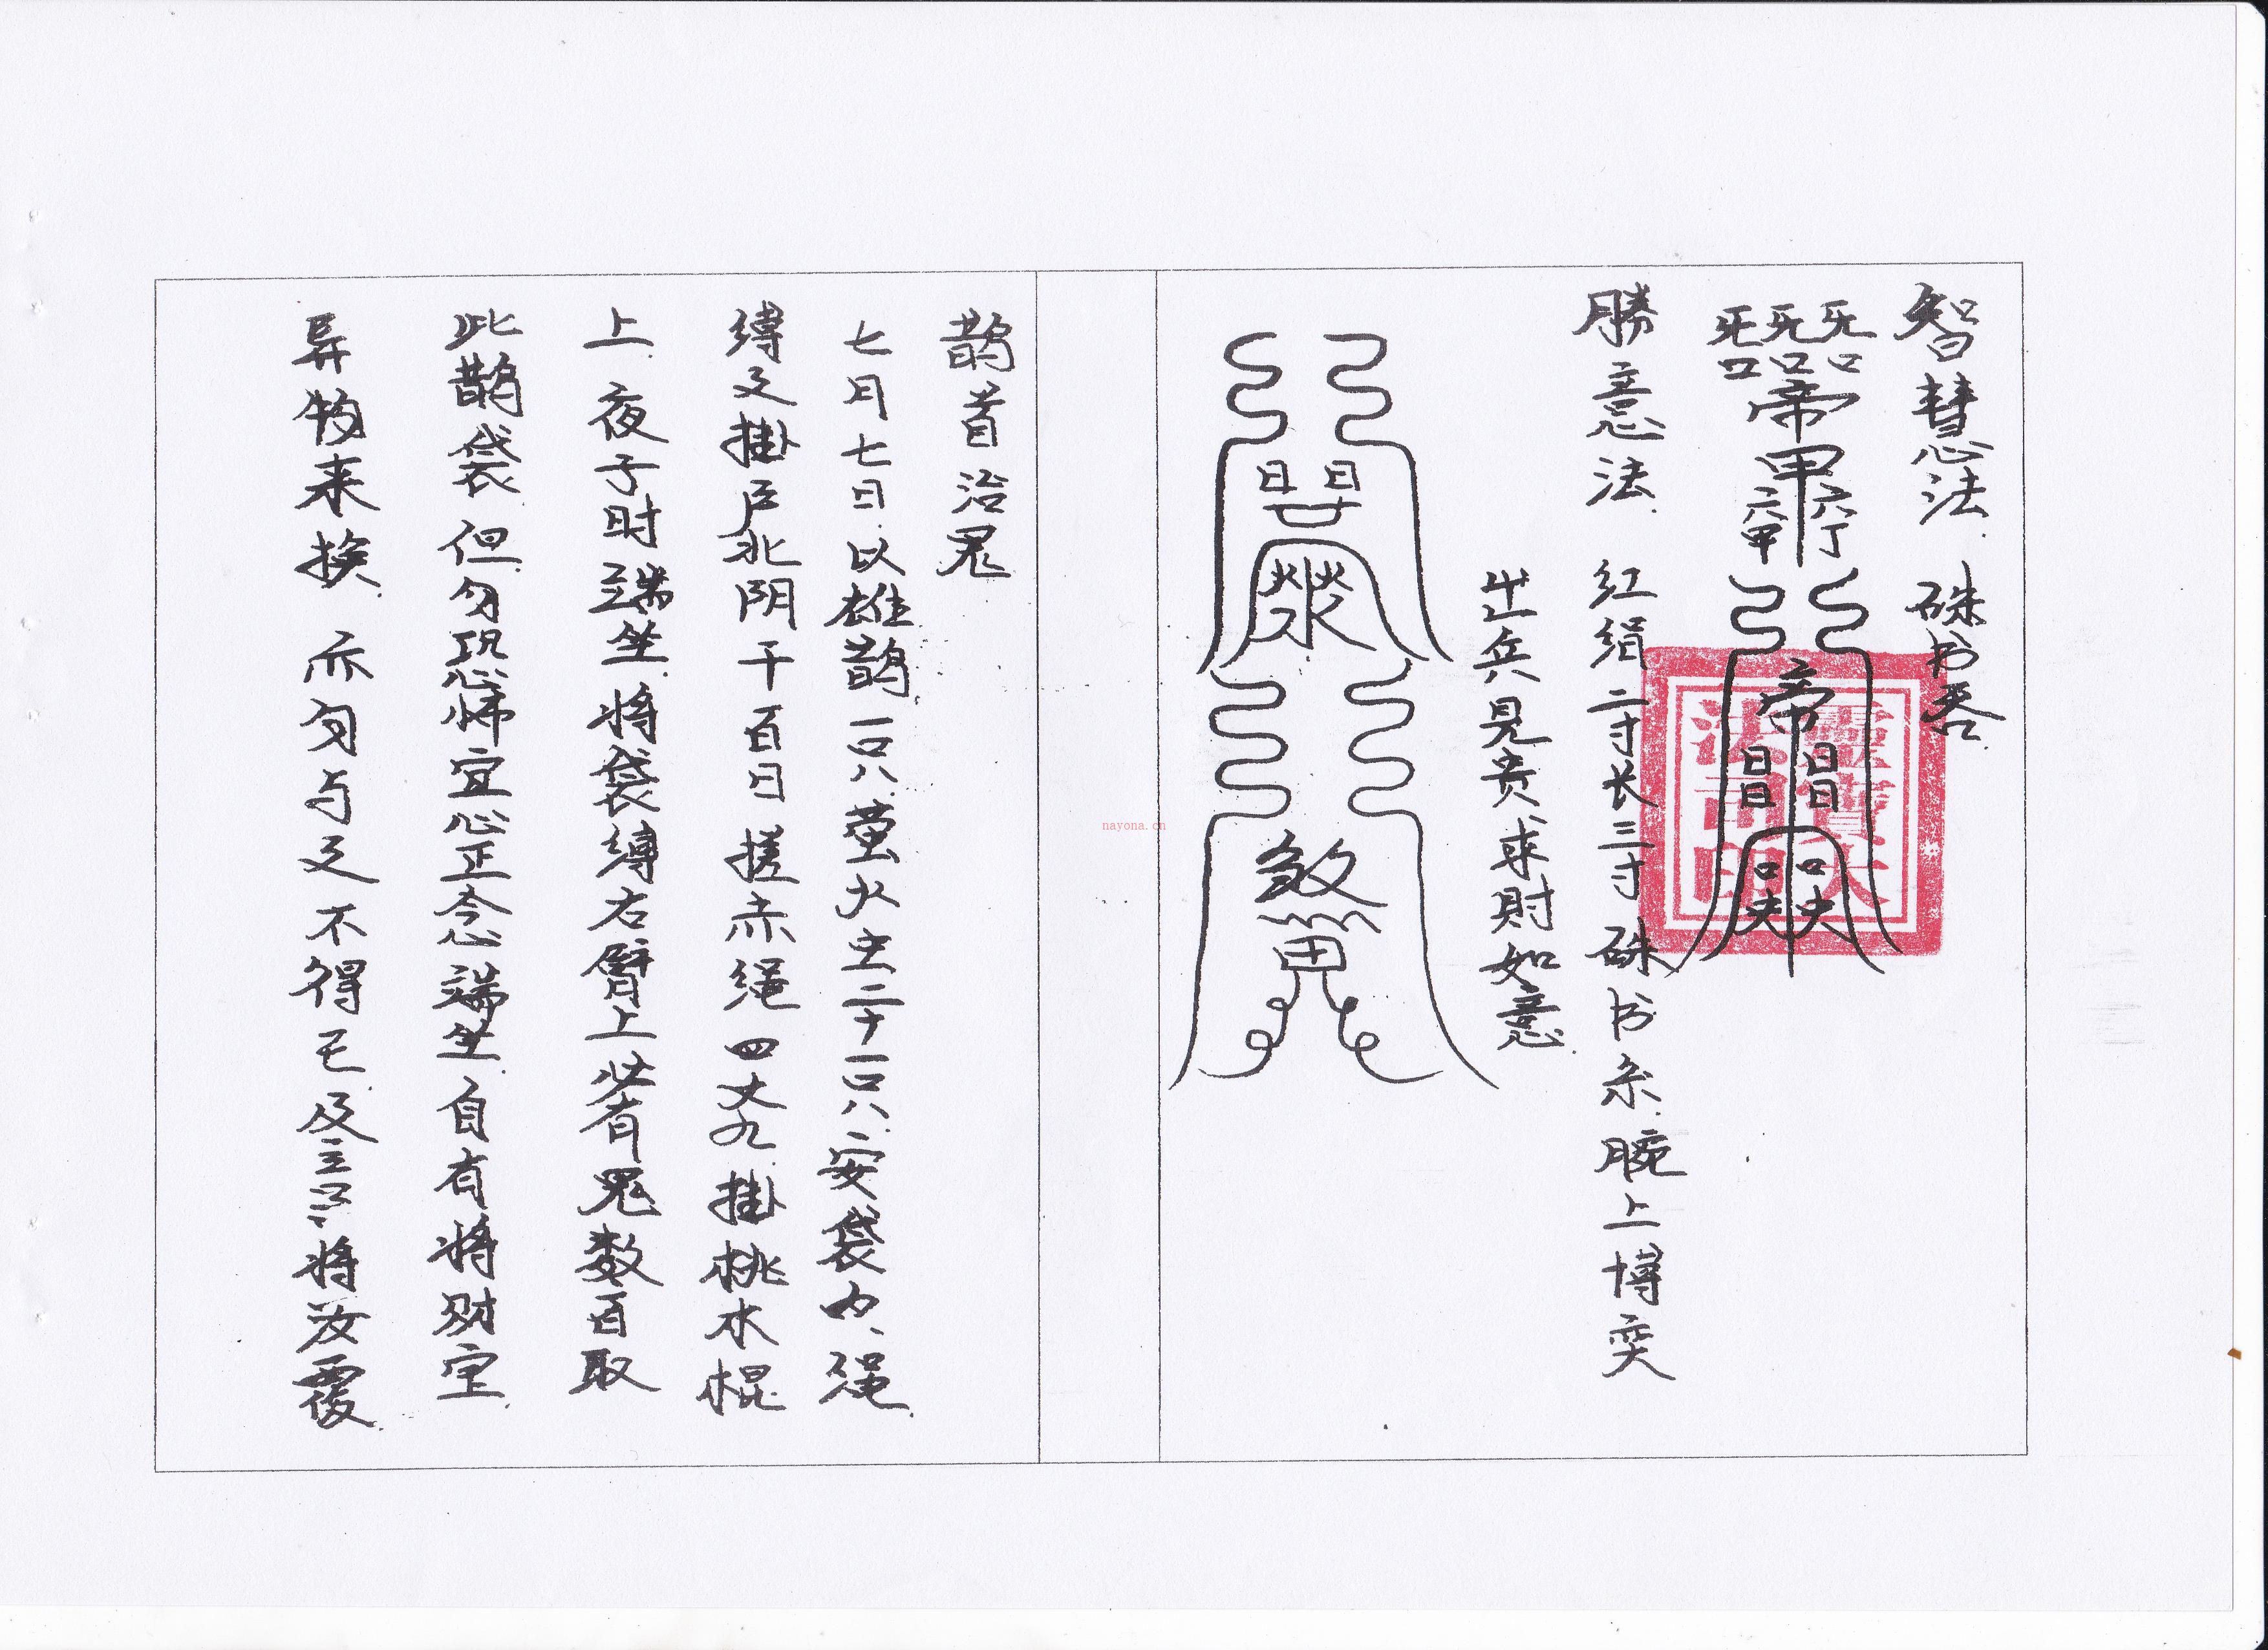 智慧法 硃书吞
勝意法 红绢二寸长三寸硃书系腕上博奕
出兵見贵求財如意
鹊首治鬼
七月七日以雄鹊一只萤火虫二十一只安袋内绳
缚之掛戶北阴干百日搓赤绳四丈九掛桃木棍
上夜子时端坐将袋缚右臂上必有鬼数百取
此鹊袋但勿恐怖宜心正念端坐自有将财宝
异物来换亦勿与之不得已及言将汝覆
nayona.cn